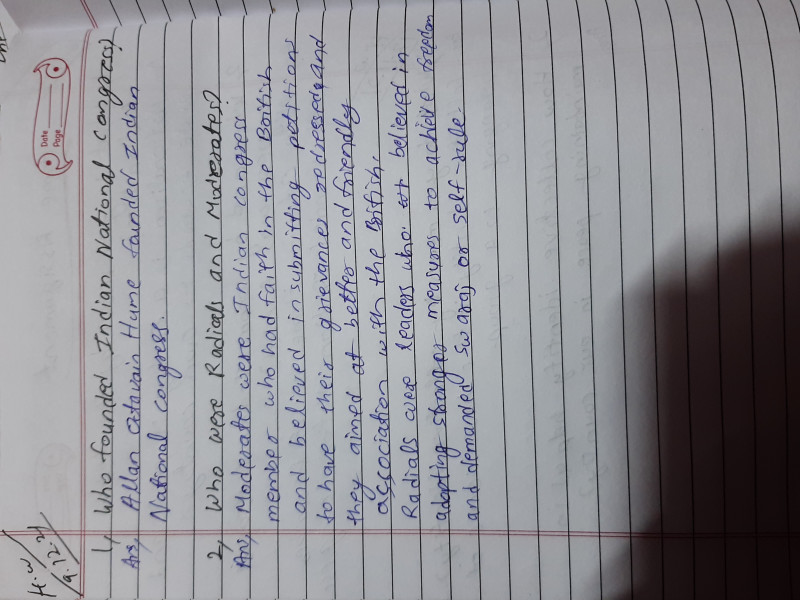 H.W
9.12.21
Date
Page
1, Who founded Indian National Congress?
Ans, Allan Octavain Hume founded Indian
National congress.
2, Who were Radials and Moderates?
Ans, Moderates were Indian congress
member who had faith in the British
and believed in submitting petitions
to have their grievances redressed and
they aimed at better and friendly
association with the British.
Radials were leaders who believed in
adopting stronger measures to achieve freedom
and demanded swaraj or self-rule.